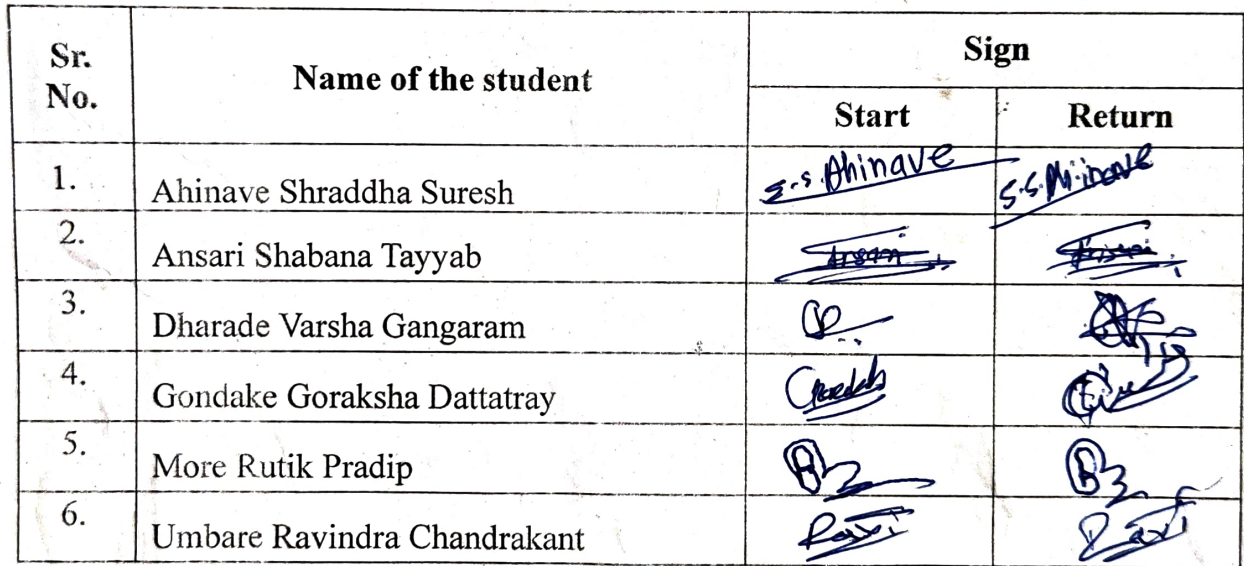 Sr. No. Name of the student Sign
Start Return
1. Ahinave Shraddha Suresh S.S.Ahinave S.S.Ahinave
2. Ansari Shabana Tayyab Ansari Ansari
3. Dharade Varsha Gangaram
4. Gondake Goraksha Dattatray
5. More Rutik Pradip
6. Umbare Ravindra Chandrakant Ravi Ravi